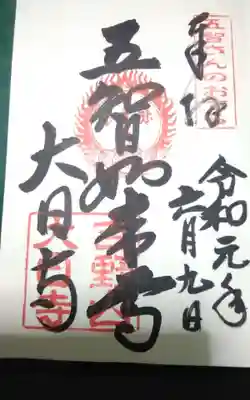 五智さんのお寺
奉拝
令和元年
六月九日
五智如来堂
大日寺
吉野山
大日寺